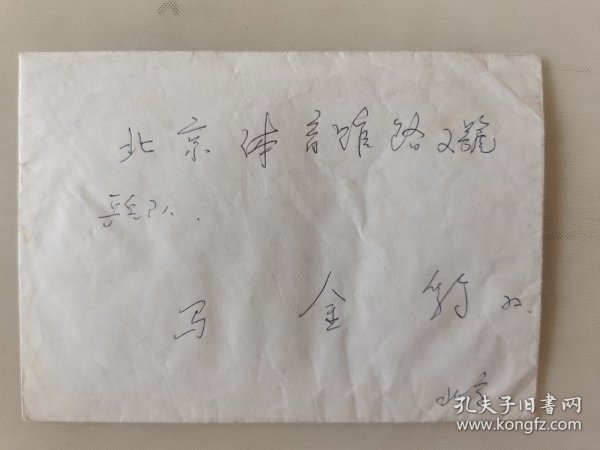 北京体育馆路2號
乒乓队.
马金豹收.
北京
孔夫子旧书网
www.kongfz.com